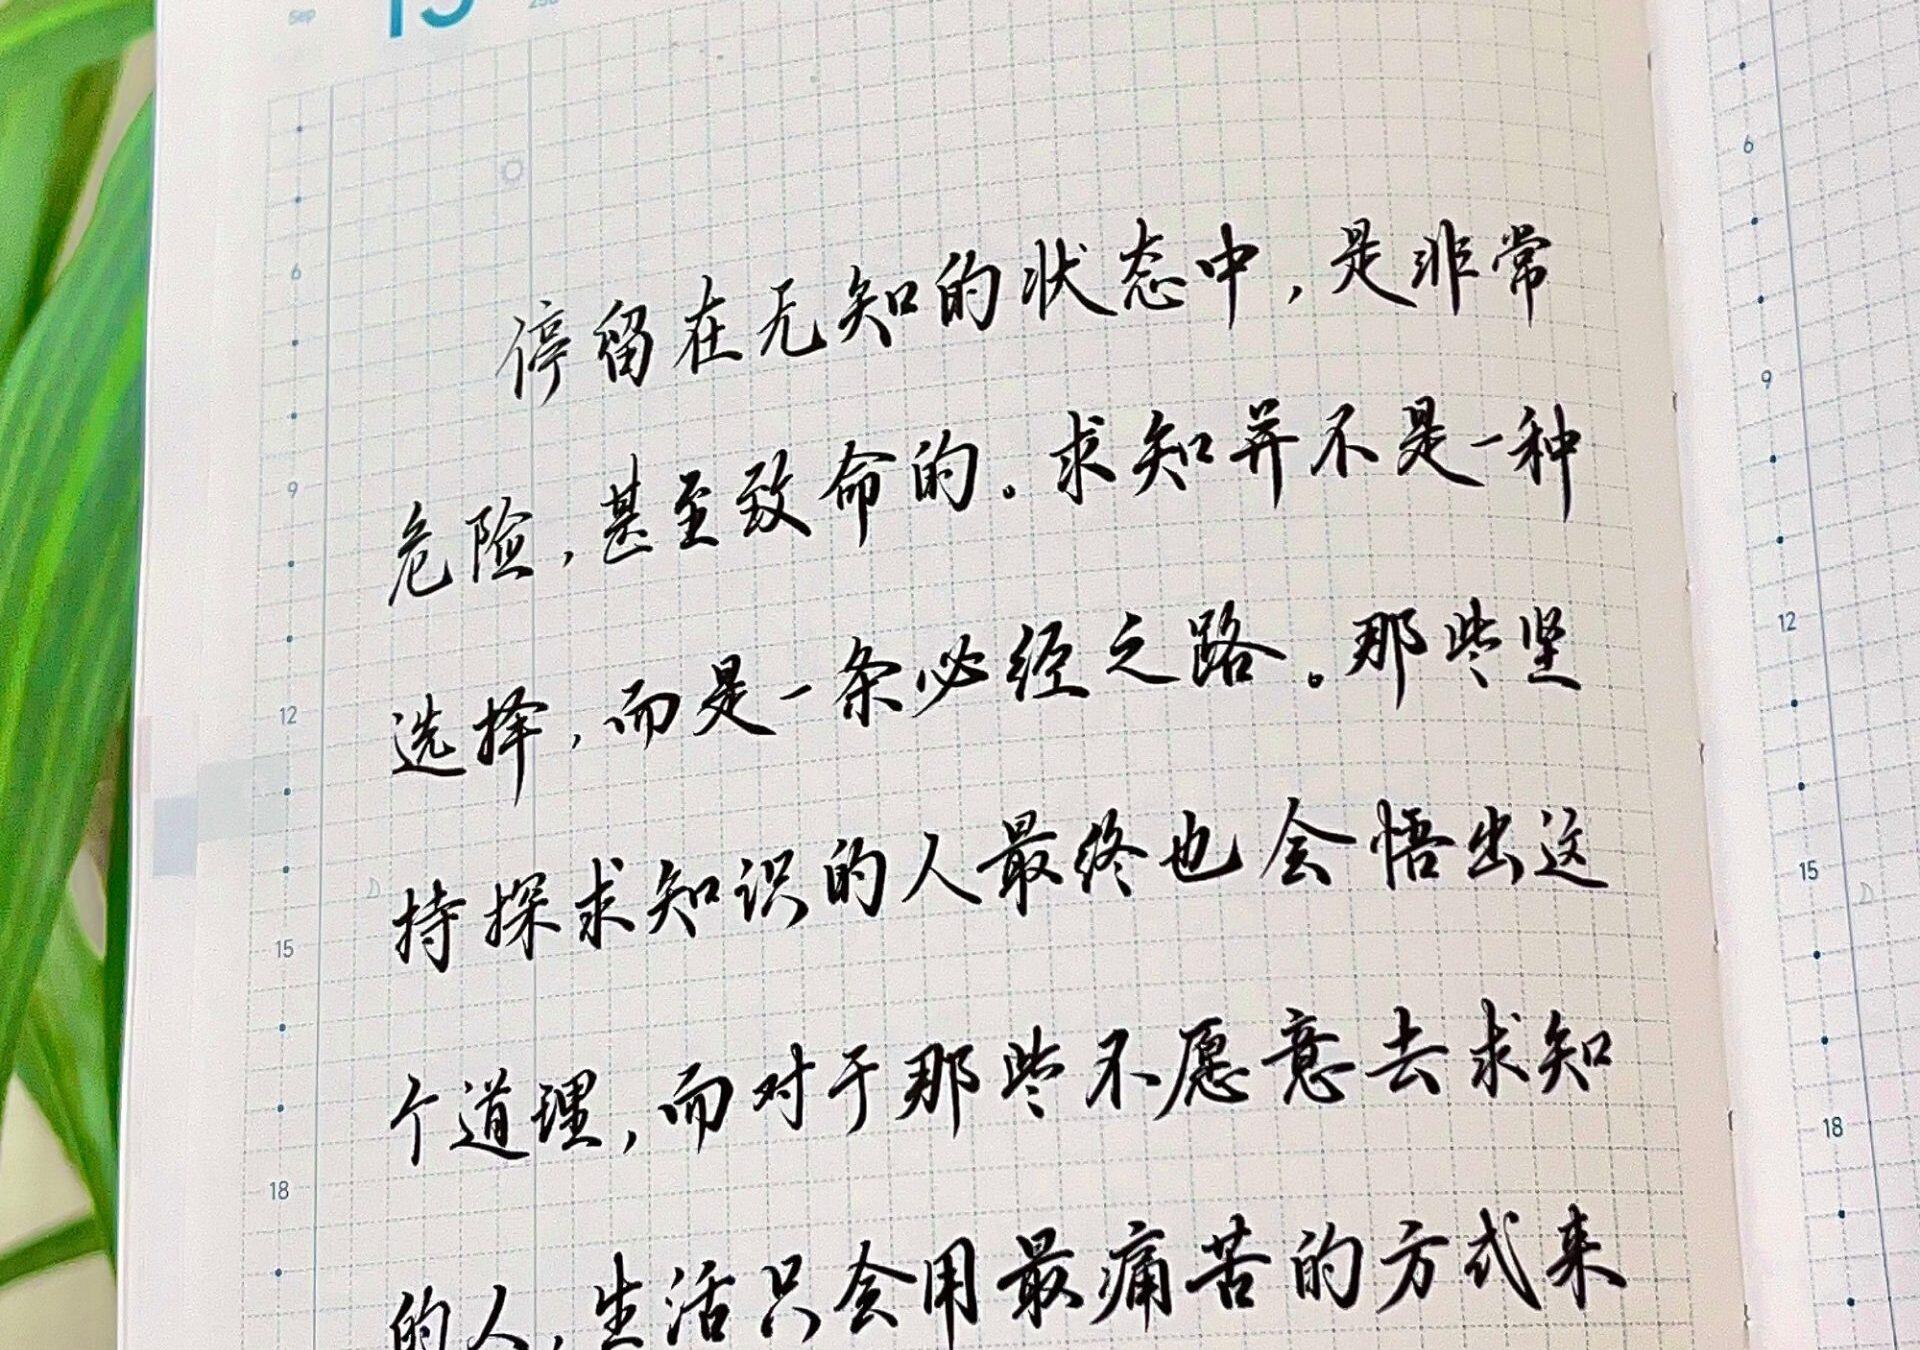 Sep 15 258
停留在无知的状态中,是非常
危险,甚至致命的。求知并不是一种
选择,而是一条必经之路。那些坚
持探求知识的人最终也会悟出这
个道理,而对于那些不愿意去求知
的人,生活只会用最痛苦的方式来
6
9
12
15
18
6
9
12
15
18